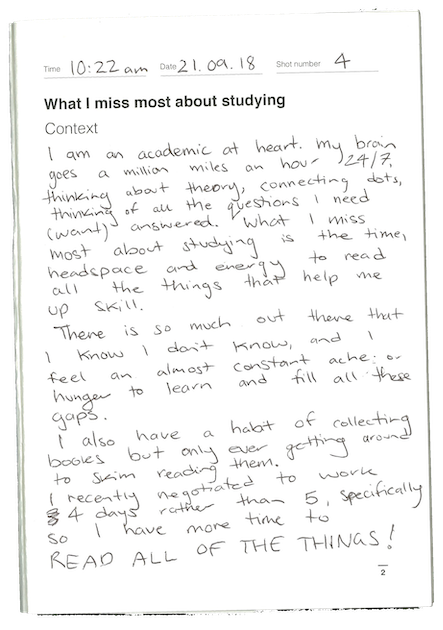 Time 10:22 am Date 21.09.18 Shot number 4
What I miss most about studying
Context
I am an academic at heart. My brain
goes a million miles an hour 24/7,
thinking about theory, connecting dots,
thinking of all the questions I need
(want) answered. What I miss
most about studying is the time,
headspace and energy to read
all the things that help me
up skill.
There is so much out there that
I know I don't know, and I
feel an almost constant ache: or
hunger to learn and fill all these
gaps.
I also have a habit of collecting
books but only ever getting around
to skim reading them.
I recently negotiated to work
4 days rather than 5, specifically
so I have more time to
READ ALL OF THE THINGS!
2